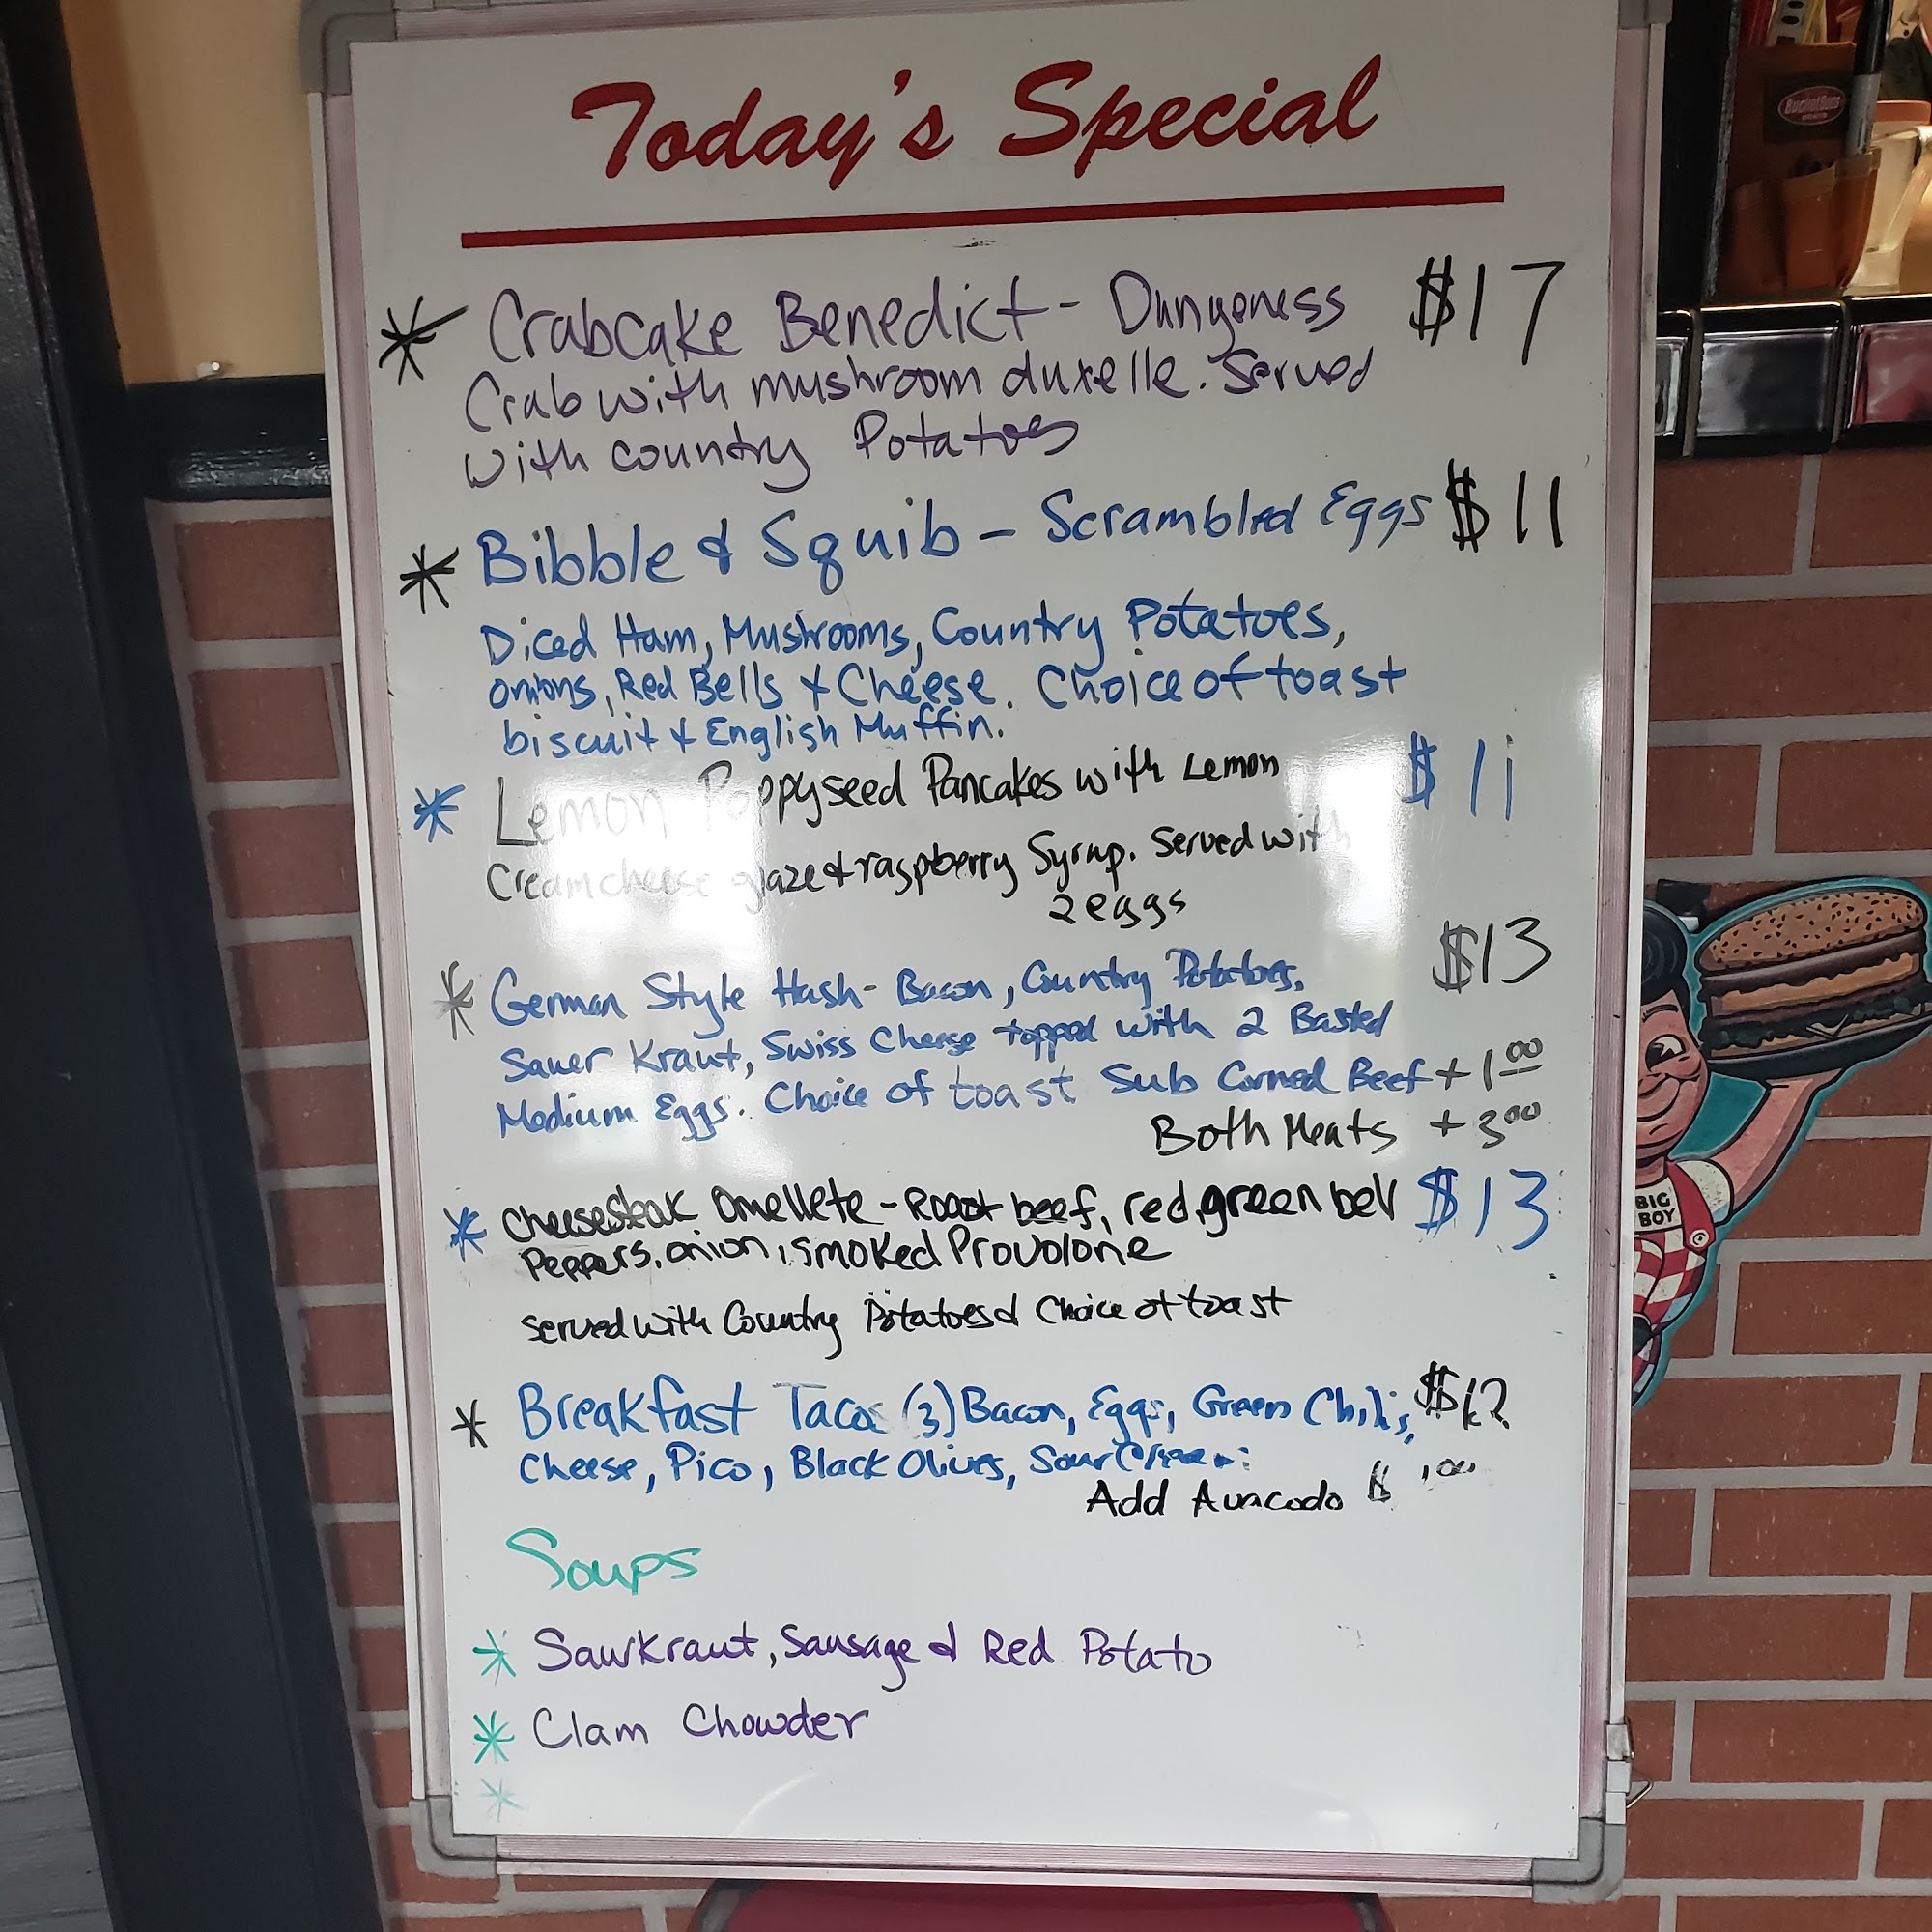 Today's Special
* Crabcake Benedict - Dungeness $17
Crab with mushroom duxelle. Served
with country Potatoes
* Bibble & Squib - Scrambled Eggs $11
Diced Ham, Mushrooms, Country Potatoes,
onions, Red Bells & Cheese. Choice of toast
biscuit & English Muffin.
* Lemon Poppyseed Pancakes with Lemon $11
Creamcheese glaze & raspberry Syrup. Served with
2 eggs
* German Style Hash - Bacon, Country Potatoes, $13
Sauer Kraut, Swiss Cheese topped with 2 Basted
Medium Eggs. Choice of toast Sub Corned Beef + 1.00
Both Meats + 3.00
* Cheesesteak Omellete - Roast beef, red, green bell $13
Peppers, onion, smoked Provolone
served with Country Potatoes & Choice of toast
* Breakfast Tacos (3) Bacon, Eggs, Green Chilis, $12
Cheese, Pico, Black Olives, Sour Cream
Add Avacado $ .00
Soups
* Saurkraut, Sausage & Red Potato
* Clam Chowder
*
BIG
BOY